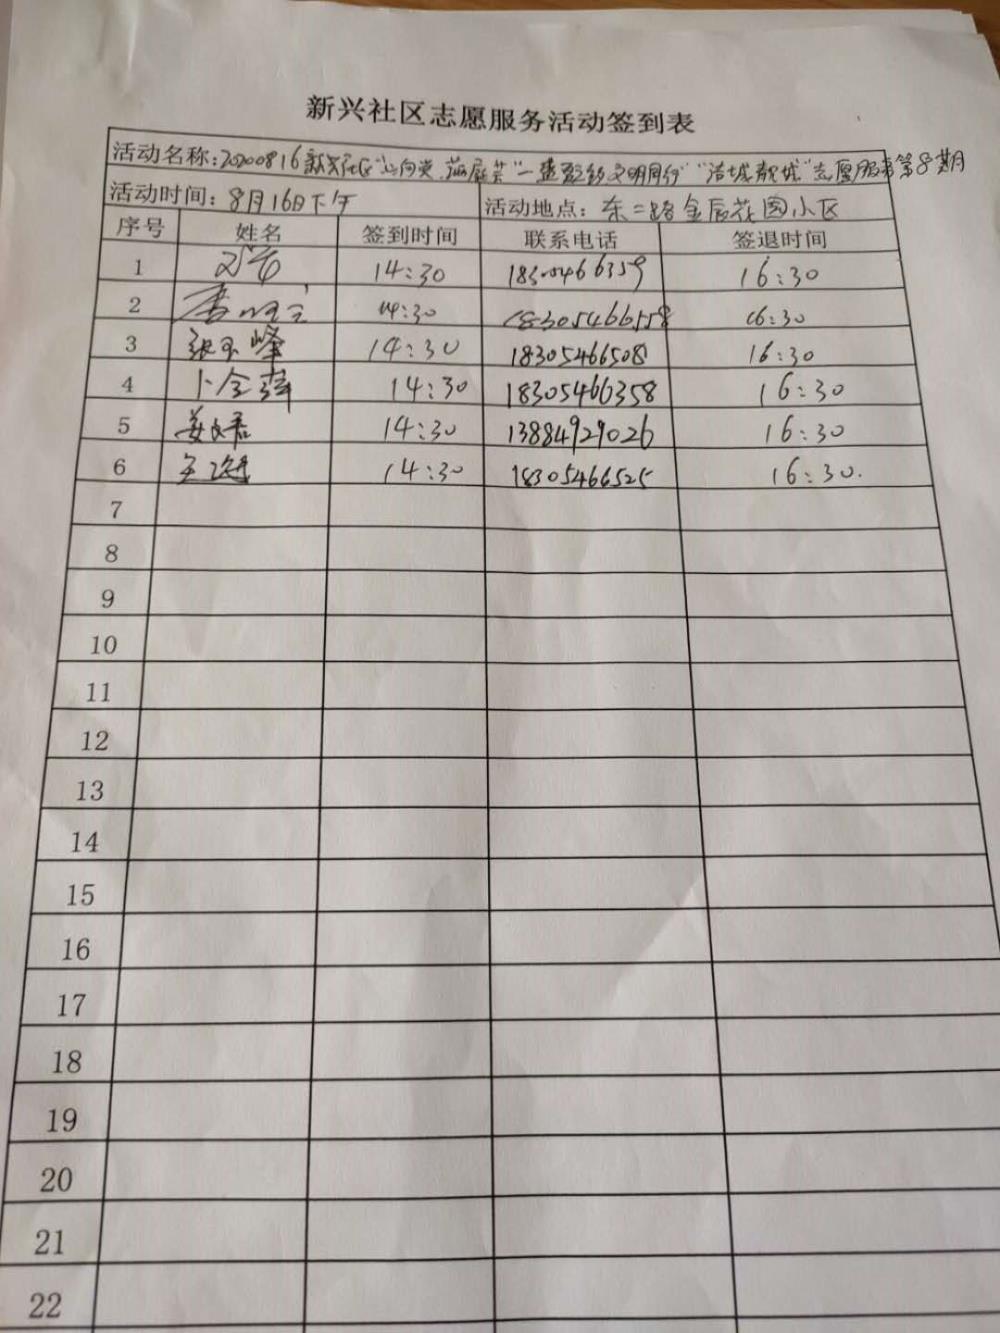 新兴社区志愿服务活动签到表
活动名称：20200816新兴社区"心向党 "一 文明同行""洁城靓城"志愿服务第8期
活动时间：8月16日下午 活动地点：东二路金辰花园小区
序号 姓名 签到时间 联系电话 签退时间
1 14:30 18305466359 16:30
2 14:30 18305466558 16:30
3 张玉峰 14:30 18305466508 16:30
4 卜令萍 14:30 18305466358 16:30
5 14:30 13884929026 16:30
6 14:30 18305466525 16:30.
7
8
9
10
11
12
13
14
15
16
17
18
19
20
21
22